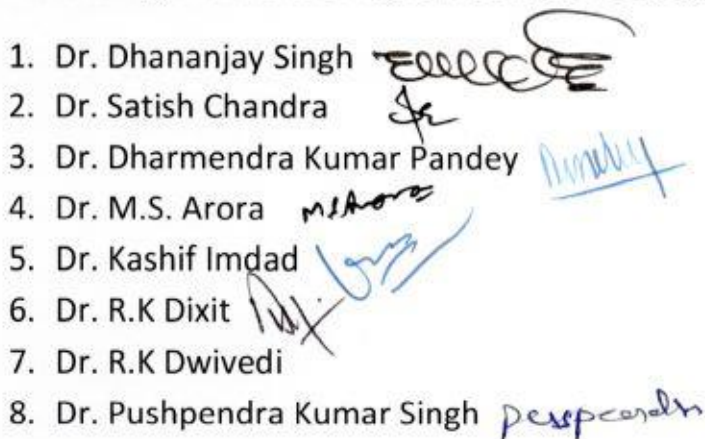 1. Dr. Dhananjay Singh
2. Dr. Satish Chandra
3. Dr. Dharmendra Kumar Pandey
4. Dr. M.S. Arora MSArora
5. Dr. Kashif Imdad
6. Dr. R.K Dixit
7. Dr. R.K Dwivedi
8. Dr. Pushpendra Kumar Singh